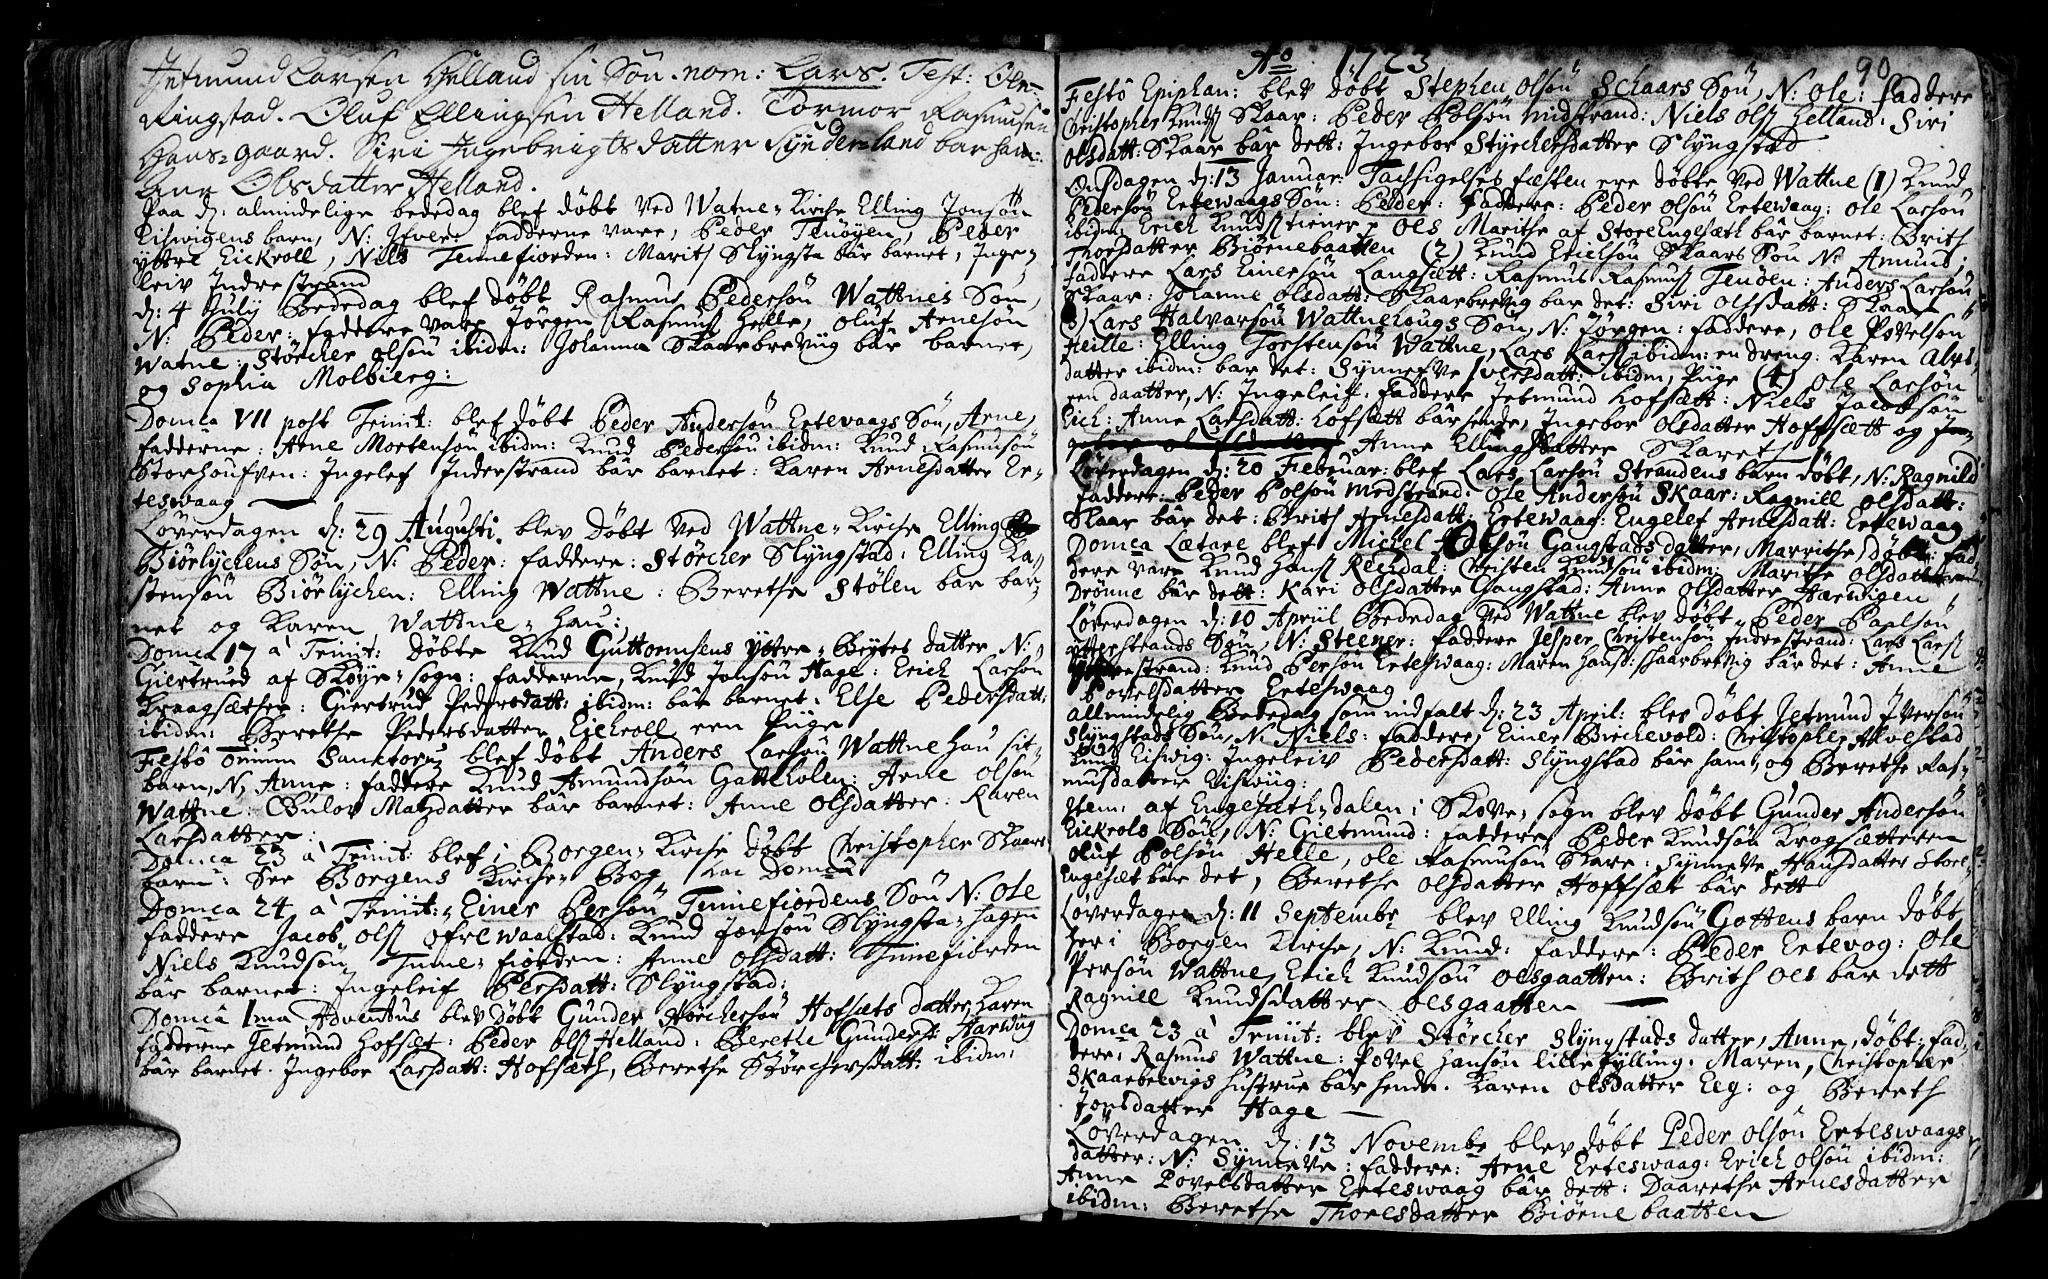 Jetmund Larsen Helland sin Søn. nom: Lars. Test: Ole
Ringstad. Oluf Ellingsen Helland. Tormor Rasmusen
Hans-gaard. Siri Ingebrigtsdatter Synderland bar ham:
Ane Olsdatter Helland.
Paa d: almindelige bededag blef døbt ved Watne-Kirche Elling Jonsøn
barn, N: Ifver: fadderne vare, Peder Tenøyen, Peder
yttre Eickroll, Nils Tennefiorden: Marith Slyngsta bar barnet, Inge-
leiv Indrestrand
d: 4 July Bededag blef døbt Rasmus Pedersøn Wattnes Søn,
N: Peder: faddere vare Jørgen Rasmusß Helle, Oluf Arnesøn
Watne: Størcher Olsøn ibidm: Johanna Skaarbrevig bar barnet,
og Sophia Molbierg:
Domca VII post Trinit: blef døbt Peder Andersøn Ertevaags Søn, Arne,
fadderne: Arne Mortensøn ibidm: Knud Pedersøn ibidm: Knud Rasmusøn
Storhoufven: Ingelef Inderstrand bar barnet: Karen Arnesdatter Er-
teswaag
Løverdagen d: 29 Augusti blev døbt ved Wattne-Kirche Elling
Biørlychens Søn, N: Peder: faddere: Størcher Slyngstad: Elling Ka-
stensøn Biørlychen: Elling Wattne: Berethe Stølen bar bar-
net og Karen Wattne-hau:
Domca 17 à Trinit: døbte Knud Guttormsens yttre-Brytes datter, N:
Giertrued af Skøye-sogn: fadderne, Knud Jonsøn Hage: Erich Larsøn
Kraagsæther: Giertrud Pedersdatt: ibidm: bar barnet: Else Pedersdatt:
ibidm: Berethe Pedersdatter Eickroll een Piige
Festô Omnium Sanktorum blef døbt Anders Larsøn Wattnehau sit
barn, N, Anne: faddere Knud Amundsøn Gatteholen: Arne Olsøn
Wattne: Gulov Matzdatter bar barnet: Anne Olsdatter: Karen
Larsdatter:
Domca 23 à Trinit: blef i Borgen-Kirche døbt Christopher Skaars
barn: See Borgens Kirche-Bog hac Domcâ
Domca 24 à Trinit: Einer Persøn Tennefiordens Søn N: Ole
faddere Jacob Olsß ofre Waalstad: Knud Jonsøn Slyngsta-hagen
Niels Knudsøn Tenne-fiorden: Anne Olsdatt: Tennefiorden
bar barnet: Ingeleif Persdatt: Slyngstad:
Domca 1ma Adventus blev døbt Gunder Størchersøn Hofsæts datter, Karen
fadderne Jetmund Hofsæt: Peder Olsß Helland: Berethe Gundersdt: Harwiig
bar barnet. Ingebor Larsdatt: Hofsæth, Berethe Størchersdatt: ibidm:
Ao 1723
90
Festô Epiphan: blev døbt Stephen Olsøn Schaars Søn, N: Ole: faddere
Christopher Knudsß Skaar: Peder Polsøn midstrand: Niels Olsß Helland: Siri
Olsdatt: Skaar bar dett: Ingebor Styrchersdatter Slyngstad
Onsdagen d: 13 Januar: Tachsigelses festen ere døbte ved Wattne (1) Knud
Pedersøn Ertewaags Søn: Peder: faddere: Peder Olsøn Ertewaag: Ole Larsøn
ibidm: Erich Knudsß tiener: Ole Marithe af Store Engesætt bar barnet: Brith
Thorsdatter Biørnebaatten (2) Knud Erichsøn Skaars Søn N: Amund:
faddere Lars Einersøn Langsætt: Rasmus Rasmusß Tenøen: Anders Larsøn
Skaar: Johanne Olsdatt: Skaarbrevig bar det: Siri Olsdatt: Skaar
(3) Lars Halvarsøn Wattnehougs Søn, N: Jørgen: faddere, Ole Povelsøn
Heille: Elling Torstensøn Wattne, Lars Larsß ibidm: en dreng: Karen Alvs
datter ibidm: bar det: Synnefve Iversdatt: ibidm, Piige (4) Ole Larsøn
een daatter, N: Ingeleif: faddere Jetmund Hofsætt: Niels Jacobsøn
Eich: Anne Larsdatt: Hofsætt bar hende, Ingebor Olsdatter Hoffsætt og
Anne Ellingsdatter Skareth
Løverdagen d: 20 Februar: blef Lars Larsøn Strandens barn døbt, N: Ragnild
faddere: Peder Polsøn Medstrand: Ole Andersøn Skaar: Ragnill Olsdatt:
Skaar bar det: Brith Arnesdatt: Ertewaag: Engelef Arnesdatt: Ertewaag
Domca Lætare blef Michel Olsøn Gangstads datter, Marrithe, døbt: fad-
dere vare Knud Hansß Reendal: Christen Knudsøn ibidm: Marithe Olsdatter
Drønne bar dett: Kari Olsdatter Gangstad: Anne Olsdatter Harwigen
Løverdagen d: 10 Apriil Bededag ved Wattne blev døbt Peder Paalsøn
ytterstrands Søn, N: Steener: faddere Jesper Christensøn Indrestrand: Lars Larsß
strand: Knud Persøn Ertesvaag: Maren Hansd: skaarbrevig bar det: Anne
Povelsdatter Erteswaag
Allmindelig Bededag som indfalt d: 23 April: blev døbt Jetmund Iversøn
Slyngstads Søn, N: Niels: faddere, Einer Birchevold: Christopher Alvestad
Knud Eichwig: Ingeleiv Pedersdatt: Slyngstad bar ham, og Berethe Ras-
musdatter
Item: af Engesæth-dalen i Skove-sogn blev døbt Gunder Andersøn
Eickrols Søn, N: Gietmund: faddere Peder Knudsøn Krogsætteren
Oluf Polsøn Helle, Ole Rasmusøn Skare: Synneve Hansdatter Store-
Engesæt bar det, Berethe Olsdatter Hoffsæt bar dett
Løverdagen d: 11 Septembr blev Elling Knudsøn Gottens barn døbt
her i Borgen Kirche, N: Knud: faddere: Peder Ertevog: Ole
Persøn Wattne, Erich Knudsøn Olsgaatten: Brith Ols bar dett
Ragnill Knudsdatter Olsgaatten
Domca 23 à Trinit: blev Størcher Slyngstads datter, Anne, døbt: fad-
dere: Rasmus Wattne: Povel Hansøn lille fylling: Maren, Christopher
Skaarbrevigs hustrue bar hende. Karen Olsdatter Eeg: og Bereth
Jonsdatter Hage
Løverdagen d: 13 Novembr blev døbt Peder Olsøn Erteswaags
datter: N: Synneve: faddere: Arne Erteswaag: Erich Olsøn ibidm:
Anne Povelsdatter Erteswaag bar dett: Daarethe Arnesdatter
ibidm: Berethe Thoresdatter Biørnebaatten